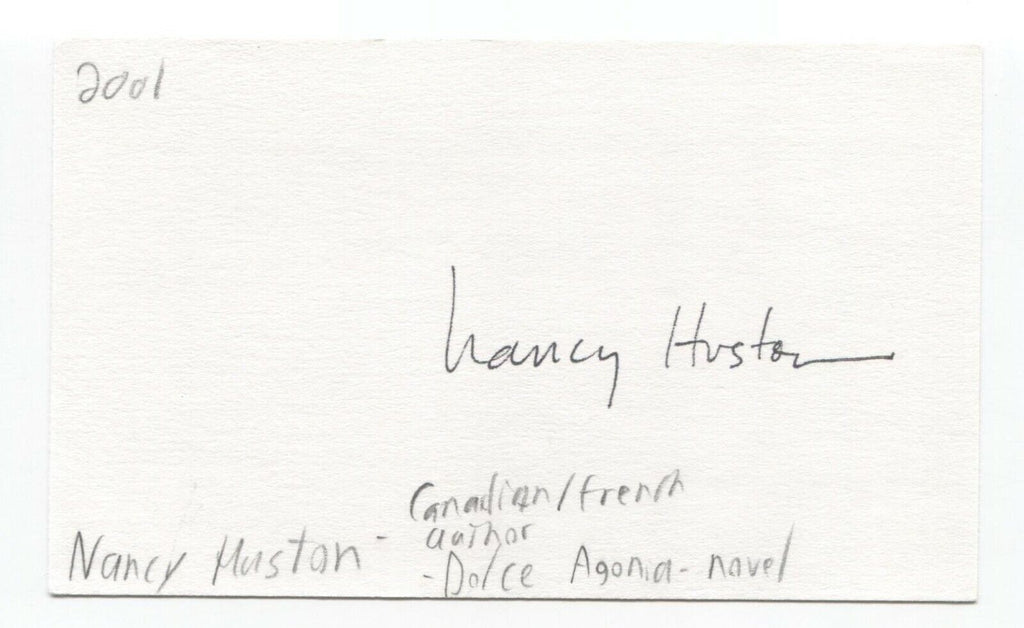 2001
Nancy Huston
Canadian/French
Nancy Huston - author
- Dolce Agonia - novel